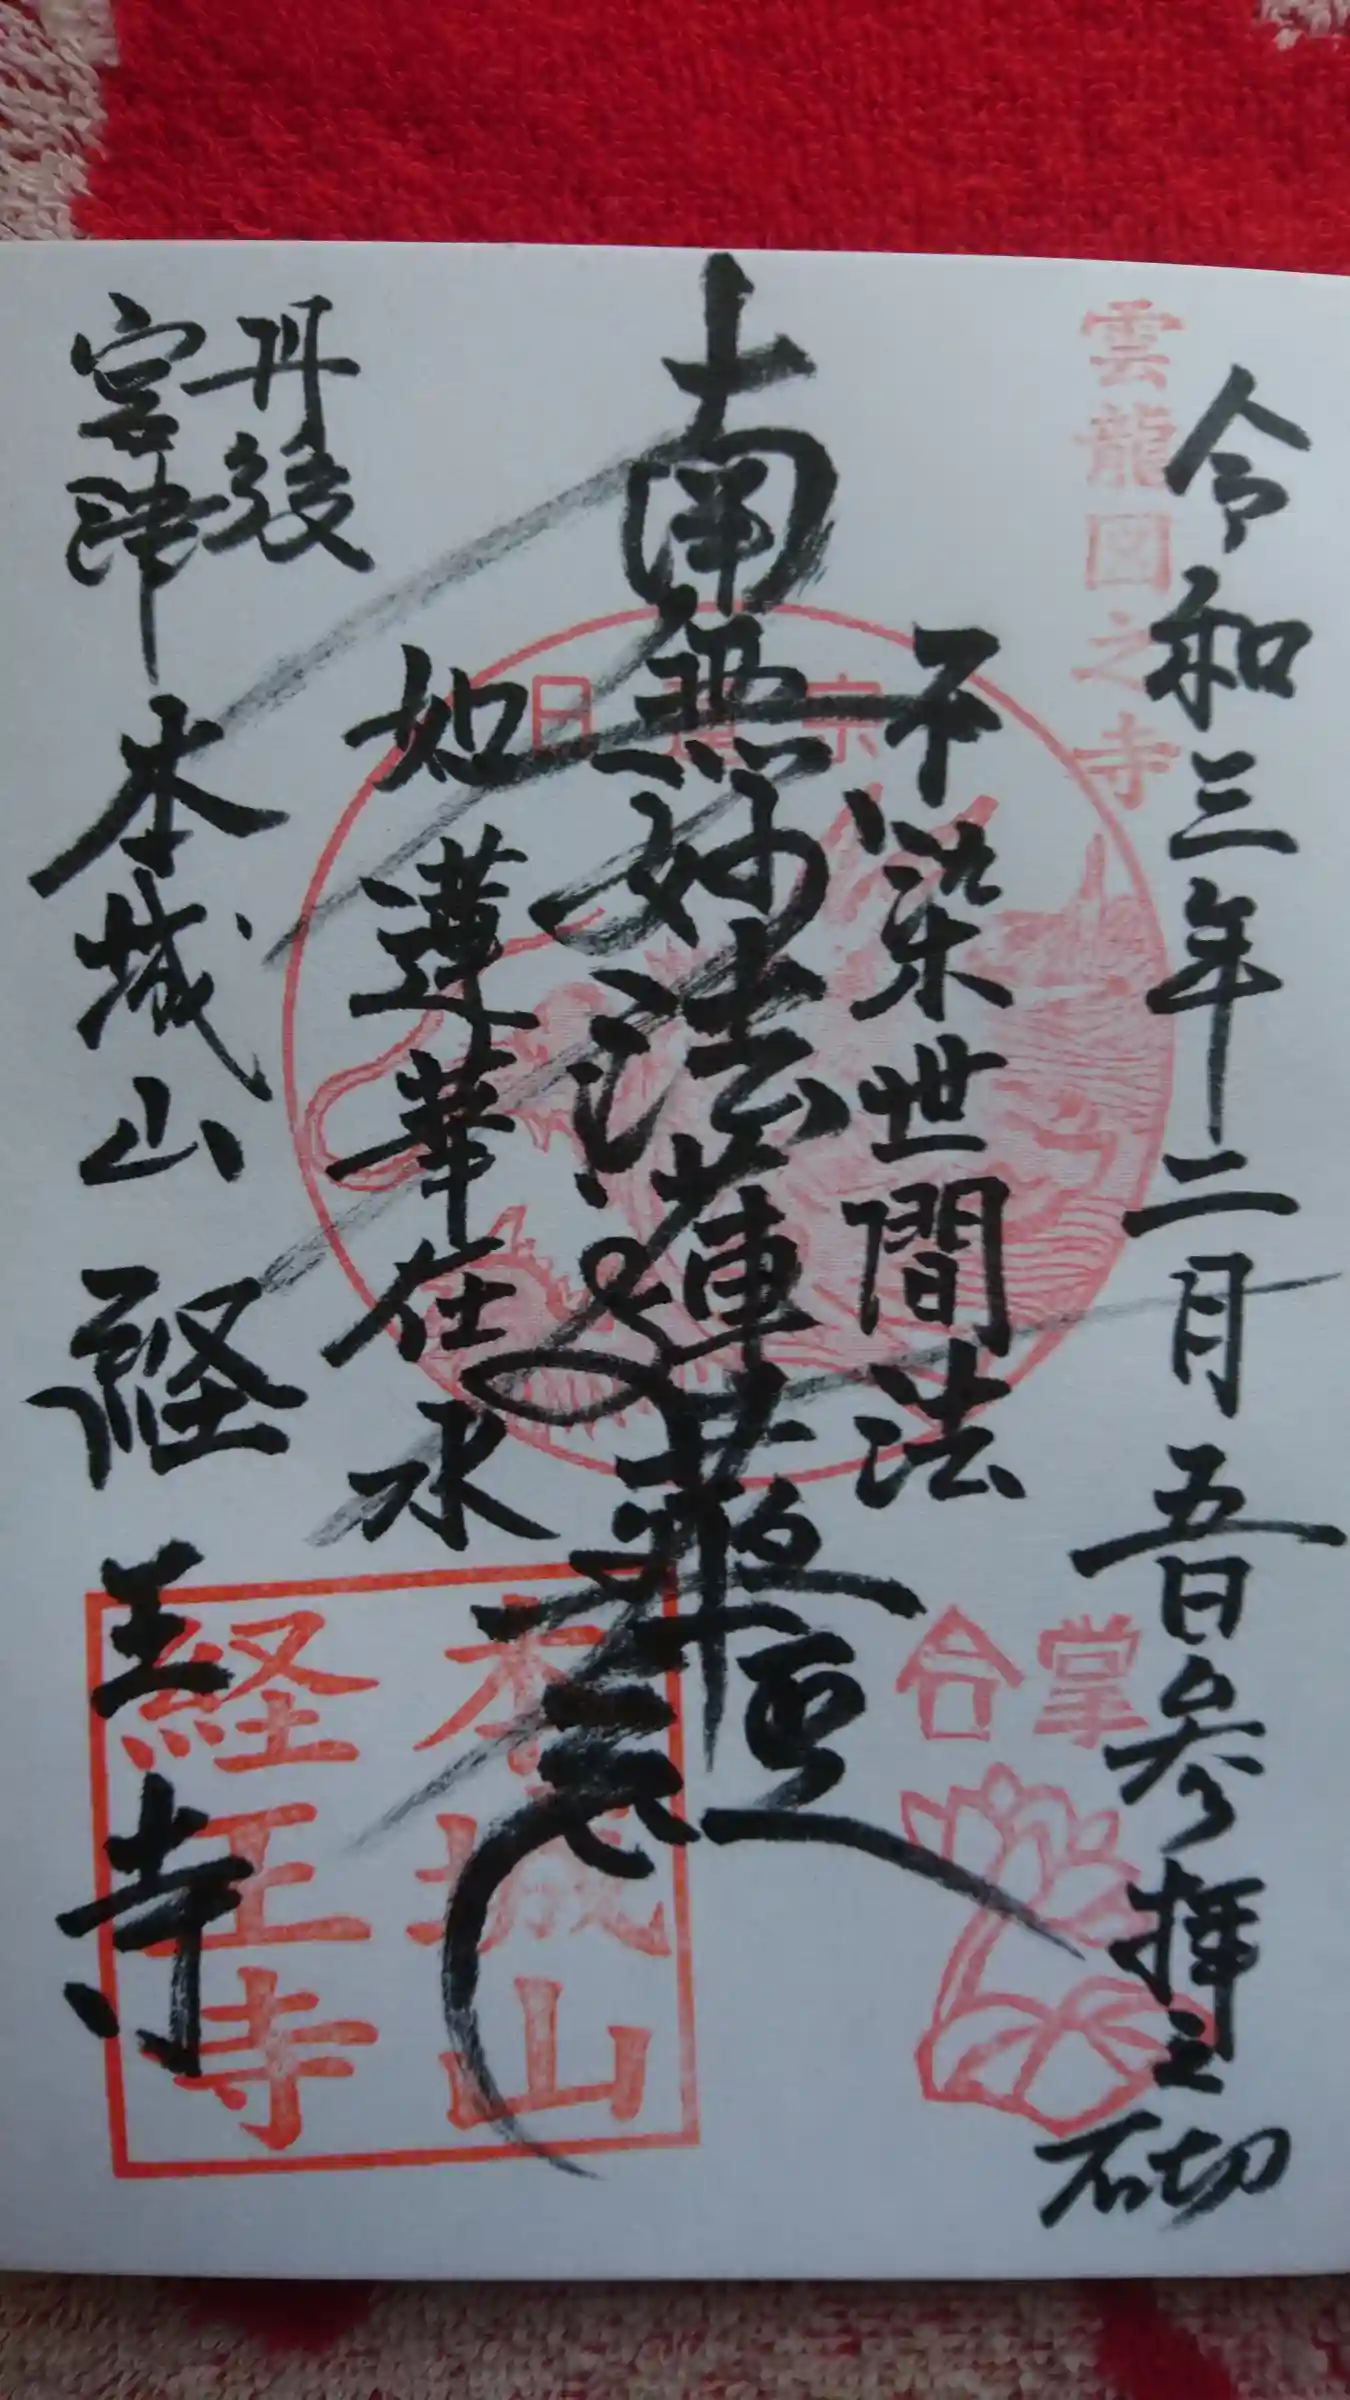 雲龍図之寺
令和三年二月五日参拝之砌
不染世間法
南無妙法蓮華経
如蓮華在水
丹後
宮津
本城山 経王寺
日蓮宗
合掌
本城山
経王寺